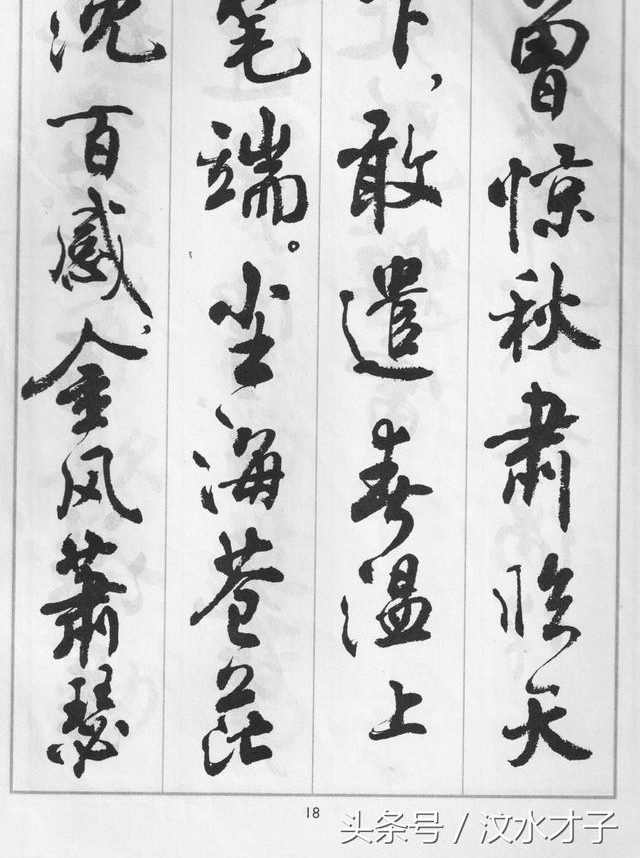 曾惊秋肅临天
下，敢遣春温上
笔端。尘海苍茫
沈百感，金风蕭瑟
18
头条号 / 汶水才子